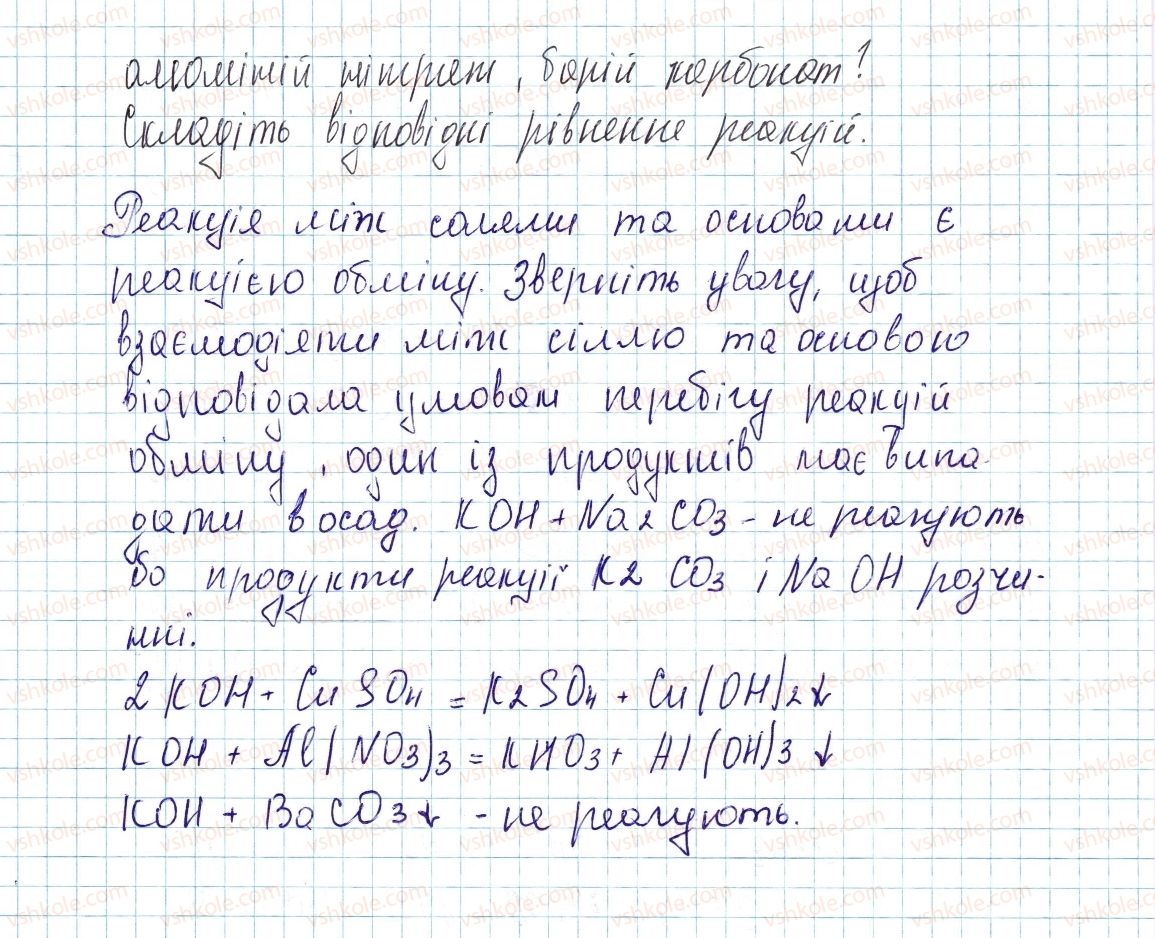 алюміній нітрат, барій карбонат?
Складіть відповідні рівненне реакцій.
Реакція між солями та основами є
реакцією обміну. Зверніть увагу, щоб
взаємодіяти між сіллю та основою
відповідала умовам перебігу реакцій
обміну, один із продуктів має випа-
дати в осад. KOH + Na2CO3 - не реагують
бо продукти реакції K2CO3 і NaOH розчи-
нні.
2KOH + CuSO4 = K2SO4 + Cu(OH)2↓
KOH + Al(NO3)3 = KNO3 + Al(OH)3↓
KOH + BaCO3↓ - не реагують.
vshkole.com